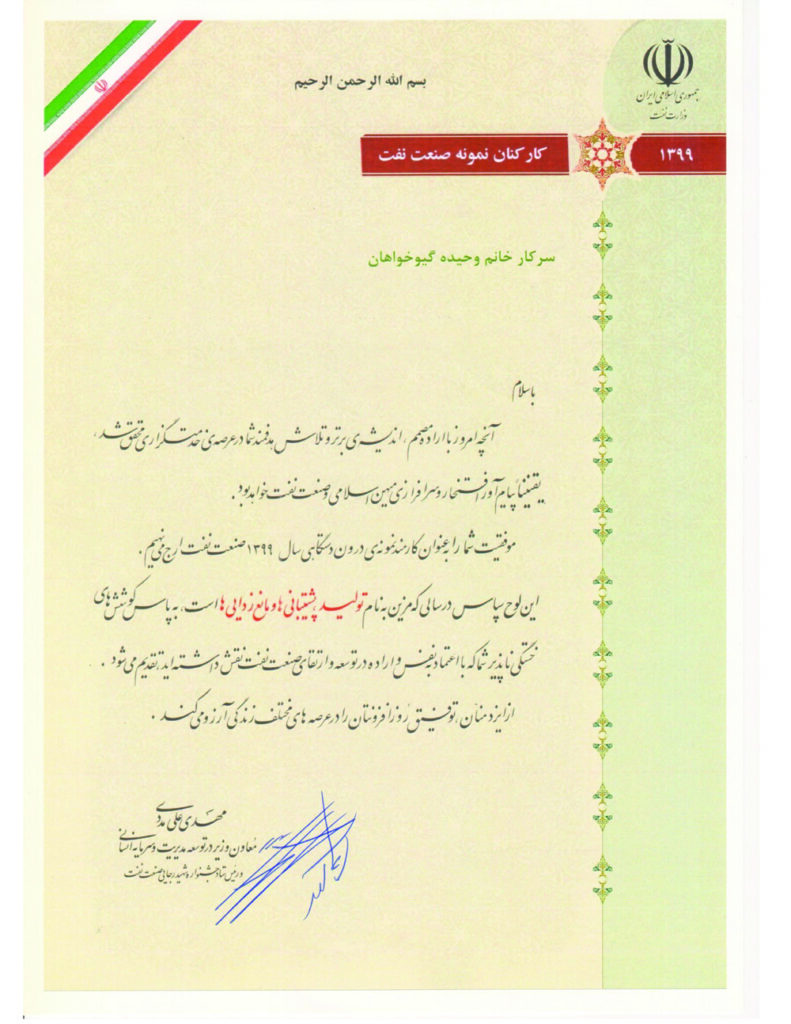 بسم الله الرحمن الرحیم
جمهوری اسلامی ایران
وزارت نفت
۱۳۹۹
کارکنان نمونه صنعت نفت
سرکار خانم وحیده گیوخواهان
باسلام
آنچه امروز با اراده مصمم، اندیشه‌ی برتر و تلاش هدفمند شما در عرصه‌ی خدمتگزاری محقق شد،
یقیناً پیام‌آور افتخار و سرافرازی میهن اسلامی و صنعت نفت خواهد بود.
موفقیت شما را به عنوان کارمند نمونه‌ی درون دستگاهی سال ۱۳۹۹ صنعت نفت ارج می‌نهیم.
این لوح سپاس در سالی که مزین به نام تولید، پشتیبانی ها و مانع زدایی ها است، به پاس کوشش های
خستگی ناپذیر شما که با اعتماد بنفس و اراده در توسعه و ارتقای صنعت نفت نقش داشته اید، تقدیم می شود.
از ایزد منّان، توفیق روزافزونتان را در عرصه های مختلف زندگی آرزو می کند.
مهدی علی مددی
معاون وزیر در توسعه مدیریت و سرمایه انسانی
و رئیس ستاد جشنواره شهید رجایی صنعت نفت